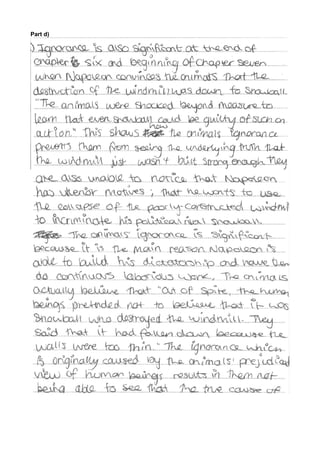 Part d)
) Ignorance is also significant at the end of
chapter six and beginning of chapter seven
when Napoleon convinces the animals that the
destruction of the windmill was down to Snowball.
"The animals were shocked beyond measure to
learn that even Snowball could be guilty of such an
action." This shows how the animals ignorance
prevents them from seeing the underlying truth that
the windmill just wasn't built strong enough. They
are also unable to notice that Napoleon
has ulterior motives; that he wants to use
the collapse of the poorly-constructed windmill
to incriminate his political rival Snowball.
The animals ignorance is significant
because it is the main reason Napoleon is
able to build his dictatorship and have them
do continuous laborious work. The animals
actually believe that "Out of spite, the human
beings pretended not to believe that it was
Snowball who destroyed the windmill. They
said that it had fallen down because the
walls were too thin." The ignorance which
is originally caused by the animals' prejudiced
view of human beings results in them not
being able to see that the true cause of